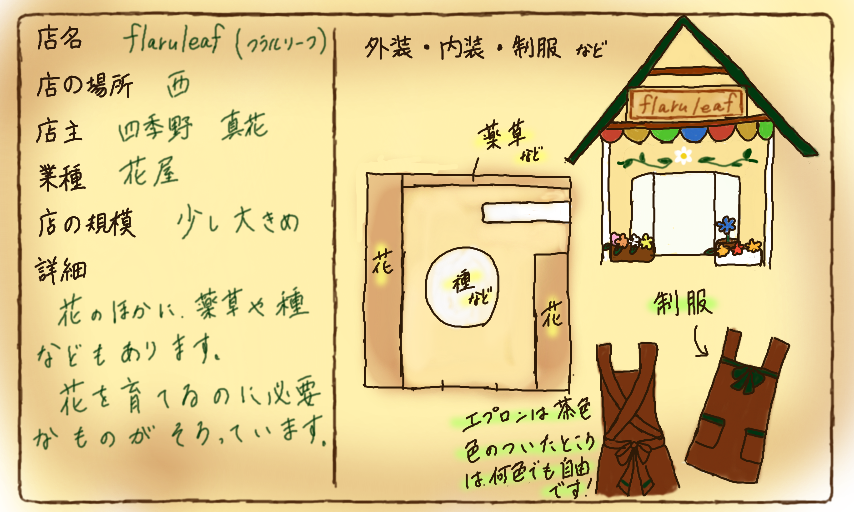 店名 flaruleaf (フラルリーフ)
店の場所 西
店主 四季野 真花
業種 花屋
店の規模 少し大きめ
詳細
花のほかに、薬草や種
などもあります。
花を育てるのに必要
なものがそろっています。
外装・内装・制服 など
flaruleaf
薬草
など
花
種
など
花
制服
エプロンは茶色
色のついたところ
は、何色でも自由
です!